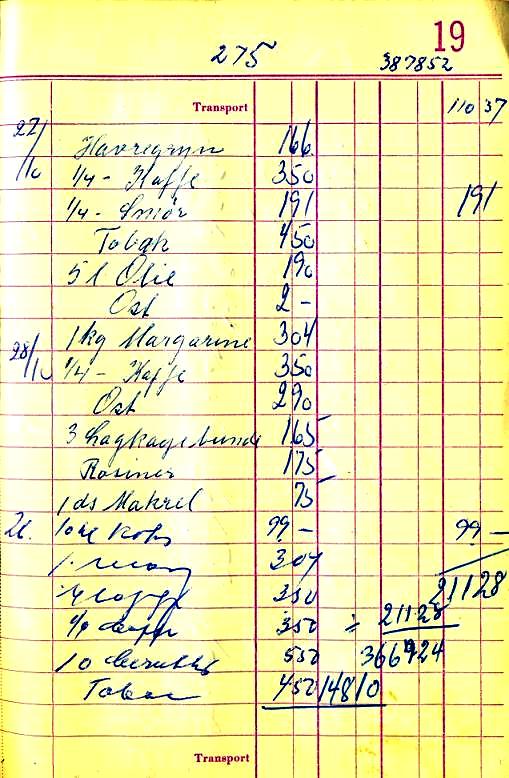 19
275 387852
Transport 110 37
27/10 Havregryn 166
1/4 - Kaffe 350
1/4 - Smør 191 191
Tobak 450
5 l Olie 190
Ost 2 -
1 kg Margarine 304
28/10 1/4 - Kaffe 350
Ost 290
3 Lagkagebunde 165
Rosiner 175
1 ds Makrel 75
26. 10 hl Koks 99 - 99 -
304 21128
350
350 21128
550 366724
Tobak 450 14810
Transport